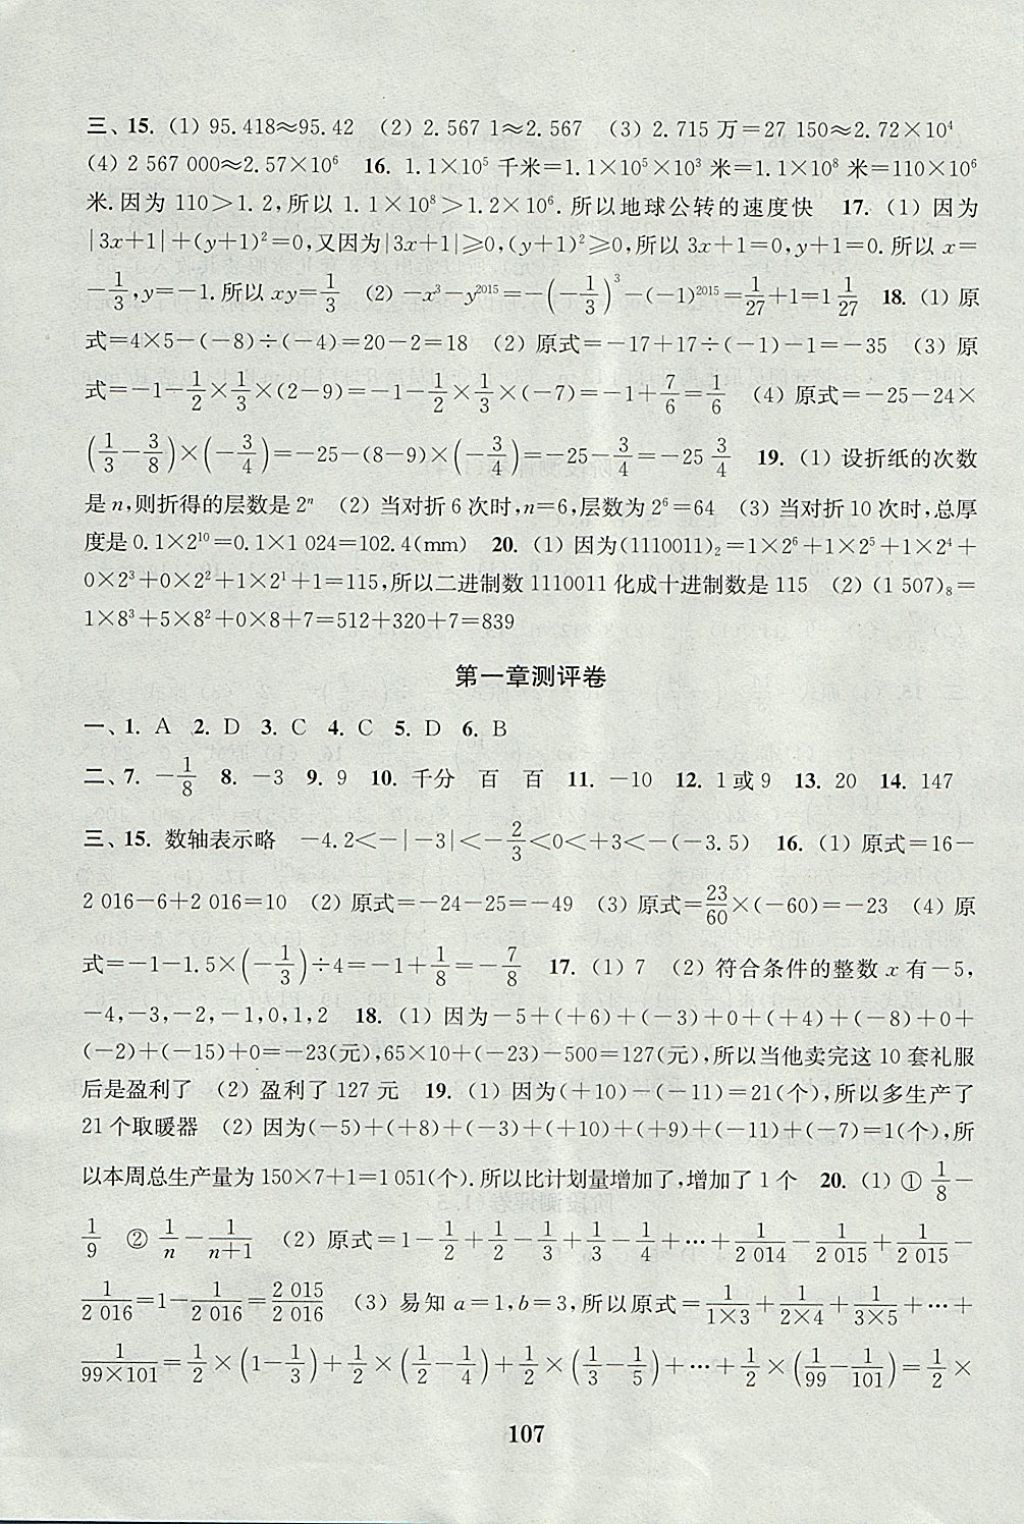 三、15. (1) 95.418≈95.42 (2) 2.567 1≈2.567 (3) 2.715 万=27 150≈2.72×10⁴
(4) 2 567 000≈2.57×10⁶ 16. 1.1×10⁵ 千米=1.1×10⁵×10³ 米=1.1×10⁸ 米=110×10⁶
米.因为 110>1.2,所以 1.1×10⁸>1.2×10⁶.所以地球公转的速度快 17. (1) 因为
|3x+1|+(y+1)²=0,又因为|3x+1|≥0,(y+1)²≥0,所以 3x+1=0,y+1=0.所以 x=
-1/3,y=-1.所以 xy=1/3 (2) -x³-y²⁰¹⁵=-(-1/3)³-(-1)²⁰¹⁵=1/27+1=1 1/27 18. (1) 原
式=4×5-(-8)÷(-4)=20-2=18 (2) 原式=-17+17÷(-1)-1=-35 (3) 原
式=-1-1/2×1/3×(2-9)=-1-1/2×1/3×(-7)=-1+7/6=1/6 (4) 原式=-25-24×
(1/3-3/8)×(-3/4)=-25-(8-9)×(-3/4)=-25-3/4=-25 3/4 19. (1) 设折纸的次数
是 n,则折得的层数是 2ⁿ (2) 当对折 6 次时,n=6,层数为 2⁶=64 (3) 当对折 10 次时,总厚
度是 0.1×2¹⁰=0.1×1 024=102.4(mm) 20. (1) 因为(1110011)₂=1×2⁶+1×2⁵+1×2⁴+
0×2³+0×2²+1×2¹+1=115,所以二进制数 1110011 化成十进制数是 115 (2) (1 507)₈=
1×8³+5×8²+0×8+7=512+320+7=839
第一章测评卷
一、1. A 2. D 3. C 4. C 5. D 6. B
二、7. -1/8 8. -3 9. 9 10. 千分 百 百 11. -10 12. 1 或 9 13. 20 14. 147
三、15. 数轴表示略 -4.2<-|-3|<-2/3<0<+3<-(-3.5) 16. (1) 原式=16-
2 016-6+2 016=10 (2) 原式=-24-25=-49 (3) 原式=23/60×(-60)=-23 (4) 原
式=-1-1.5×(-1/3)÷4=-1+1/8=-7/8 17. (1) 7 (2) 符合条件的整数 x 有-5,
-4,-3,-2,-1,0,1,2 18. (1) 因为-5+(+6)+(-3)+0+(+4)+(-8)+0+
(-2)+(-15)+0=-23(元),65×10+(-23)-500=127(元),所以当他卖完这 10 套礼服
后是盈利了 (2) 盈利了 127 元 19. (1) 因为(+10)-(-11)=21(个),所以多生产了
21 个取暖器 (2) 因为(-5)+(+8)+(-3)+(+10)+(+9)+(-11)+(-7)=1(个),所
以本周总生产量为 150×7+1=1 051(个).所以比计划量增加了,增加了 1 个 20. (1) ① 1/8-
1/9 ② 1/n-1/(n+1) (2) 原式=1-1/2+1/2-1/3+1/3-1/4+…+1/2 014-1/2 015+1/2 015-
1/2 016=1-1/2 016=2 015/2 016 (3) 易知 a=1,b=3,所以原式=1/(1×3)+1/(2×4)+1/(3×5)+…+
1/(99×101)=1/2×(1-1/3)+1/2×(1/2-1/4)+1/2×(1/3-1/5)+…+1/2×(1/99-1/101)=1/2×
107